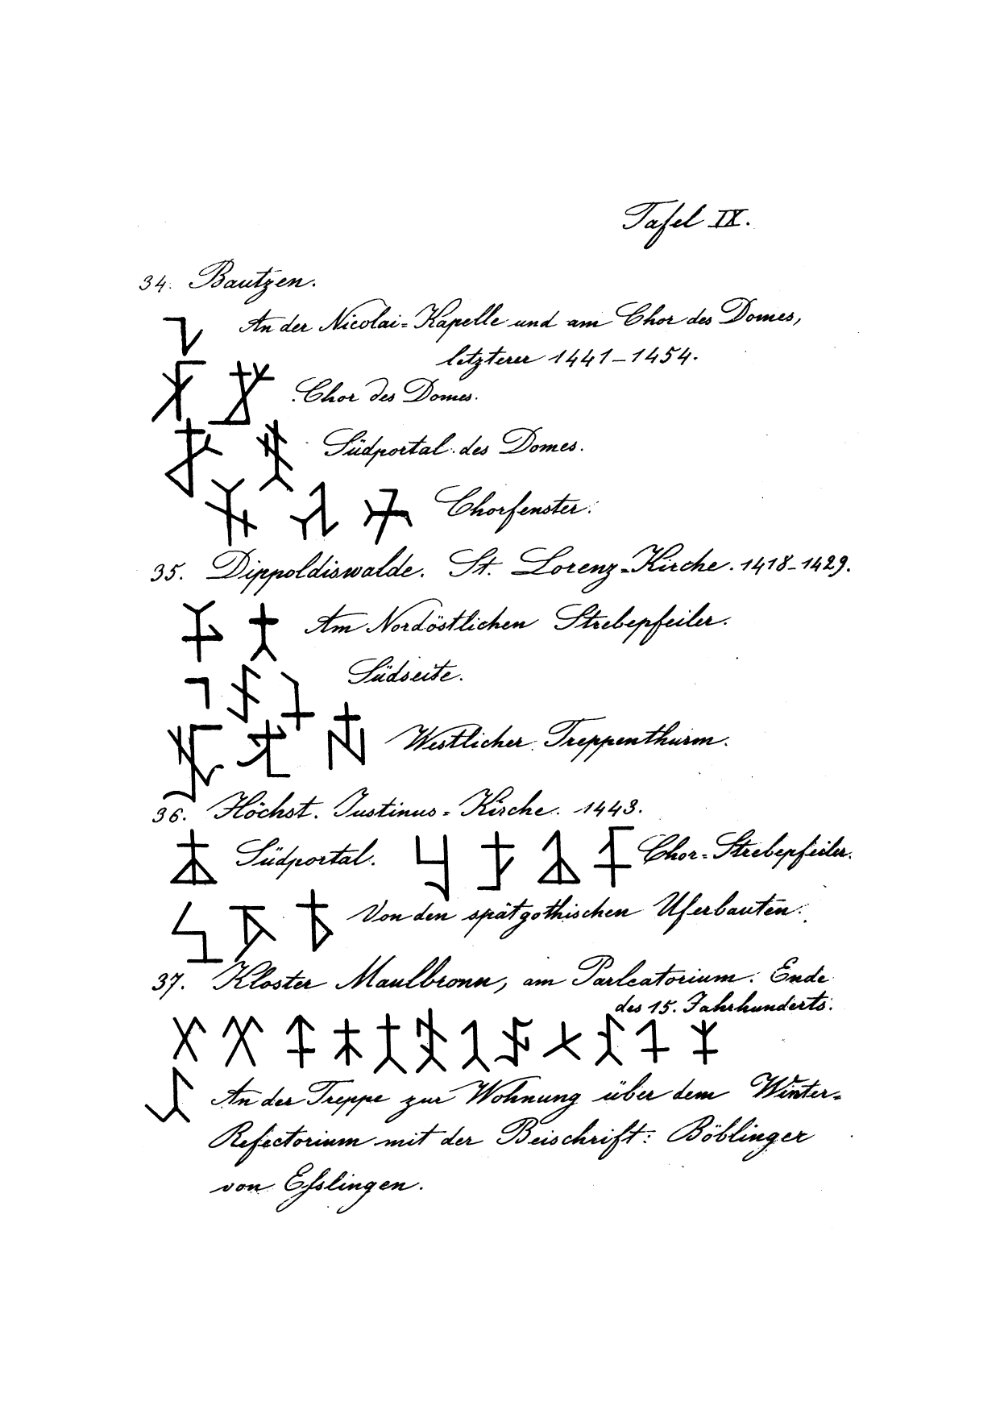 Tafel IX.
34. Bautzen.
An der Nicolai=Kapelle und am Chor des Domes,
letzterer 1441–1454.
Chor des Domes.
Südportal des Domes.
Chorfenster.
35. Dippoldiswalde. St. Lorenz-Kirche. 1418-1429.
Am Nordöstlichen Strebepfeiler.
Südseite.
Westlicher Treppenthurm.
36. Höchst. Justinus=Kirche. 1443.
Südportal. Chor=Strebepfeiler.
Von den spätgothischen Uferbauten.
37. Kloster Maulbronn, am Parleatorium. Ende
des 15. Jahrhunderts.
An der Treppe zur Wohnung über dem Winter=
Refectorium mit der Beischrift: Böblinger
von Eſslingen.